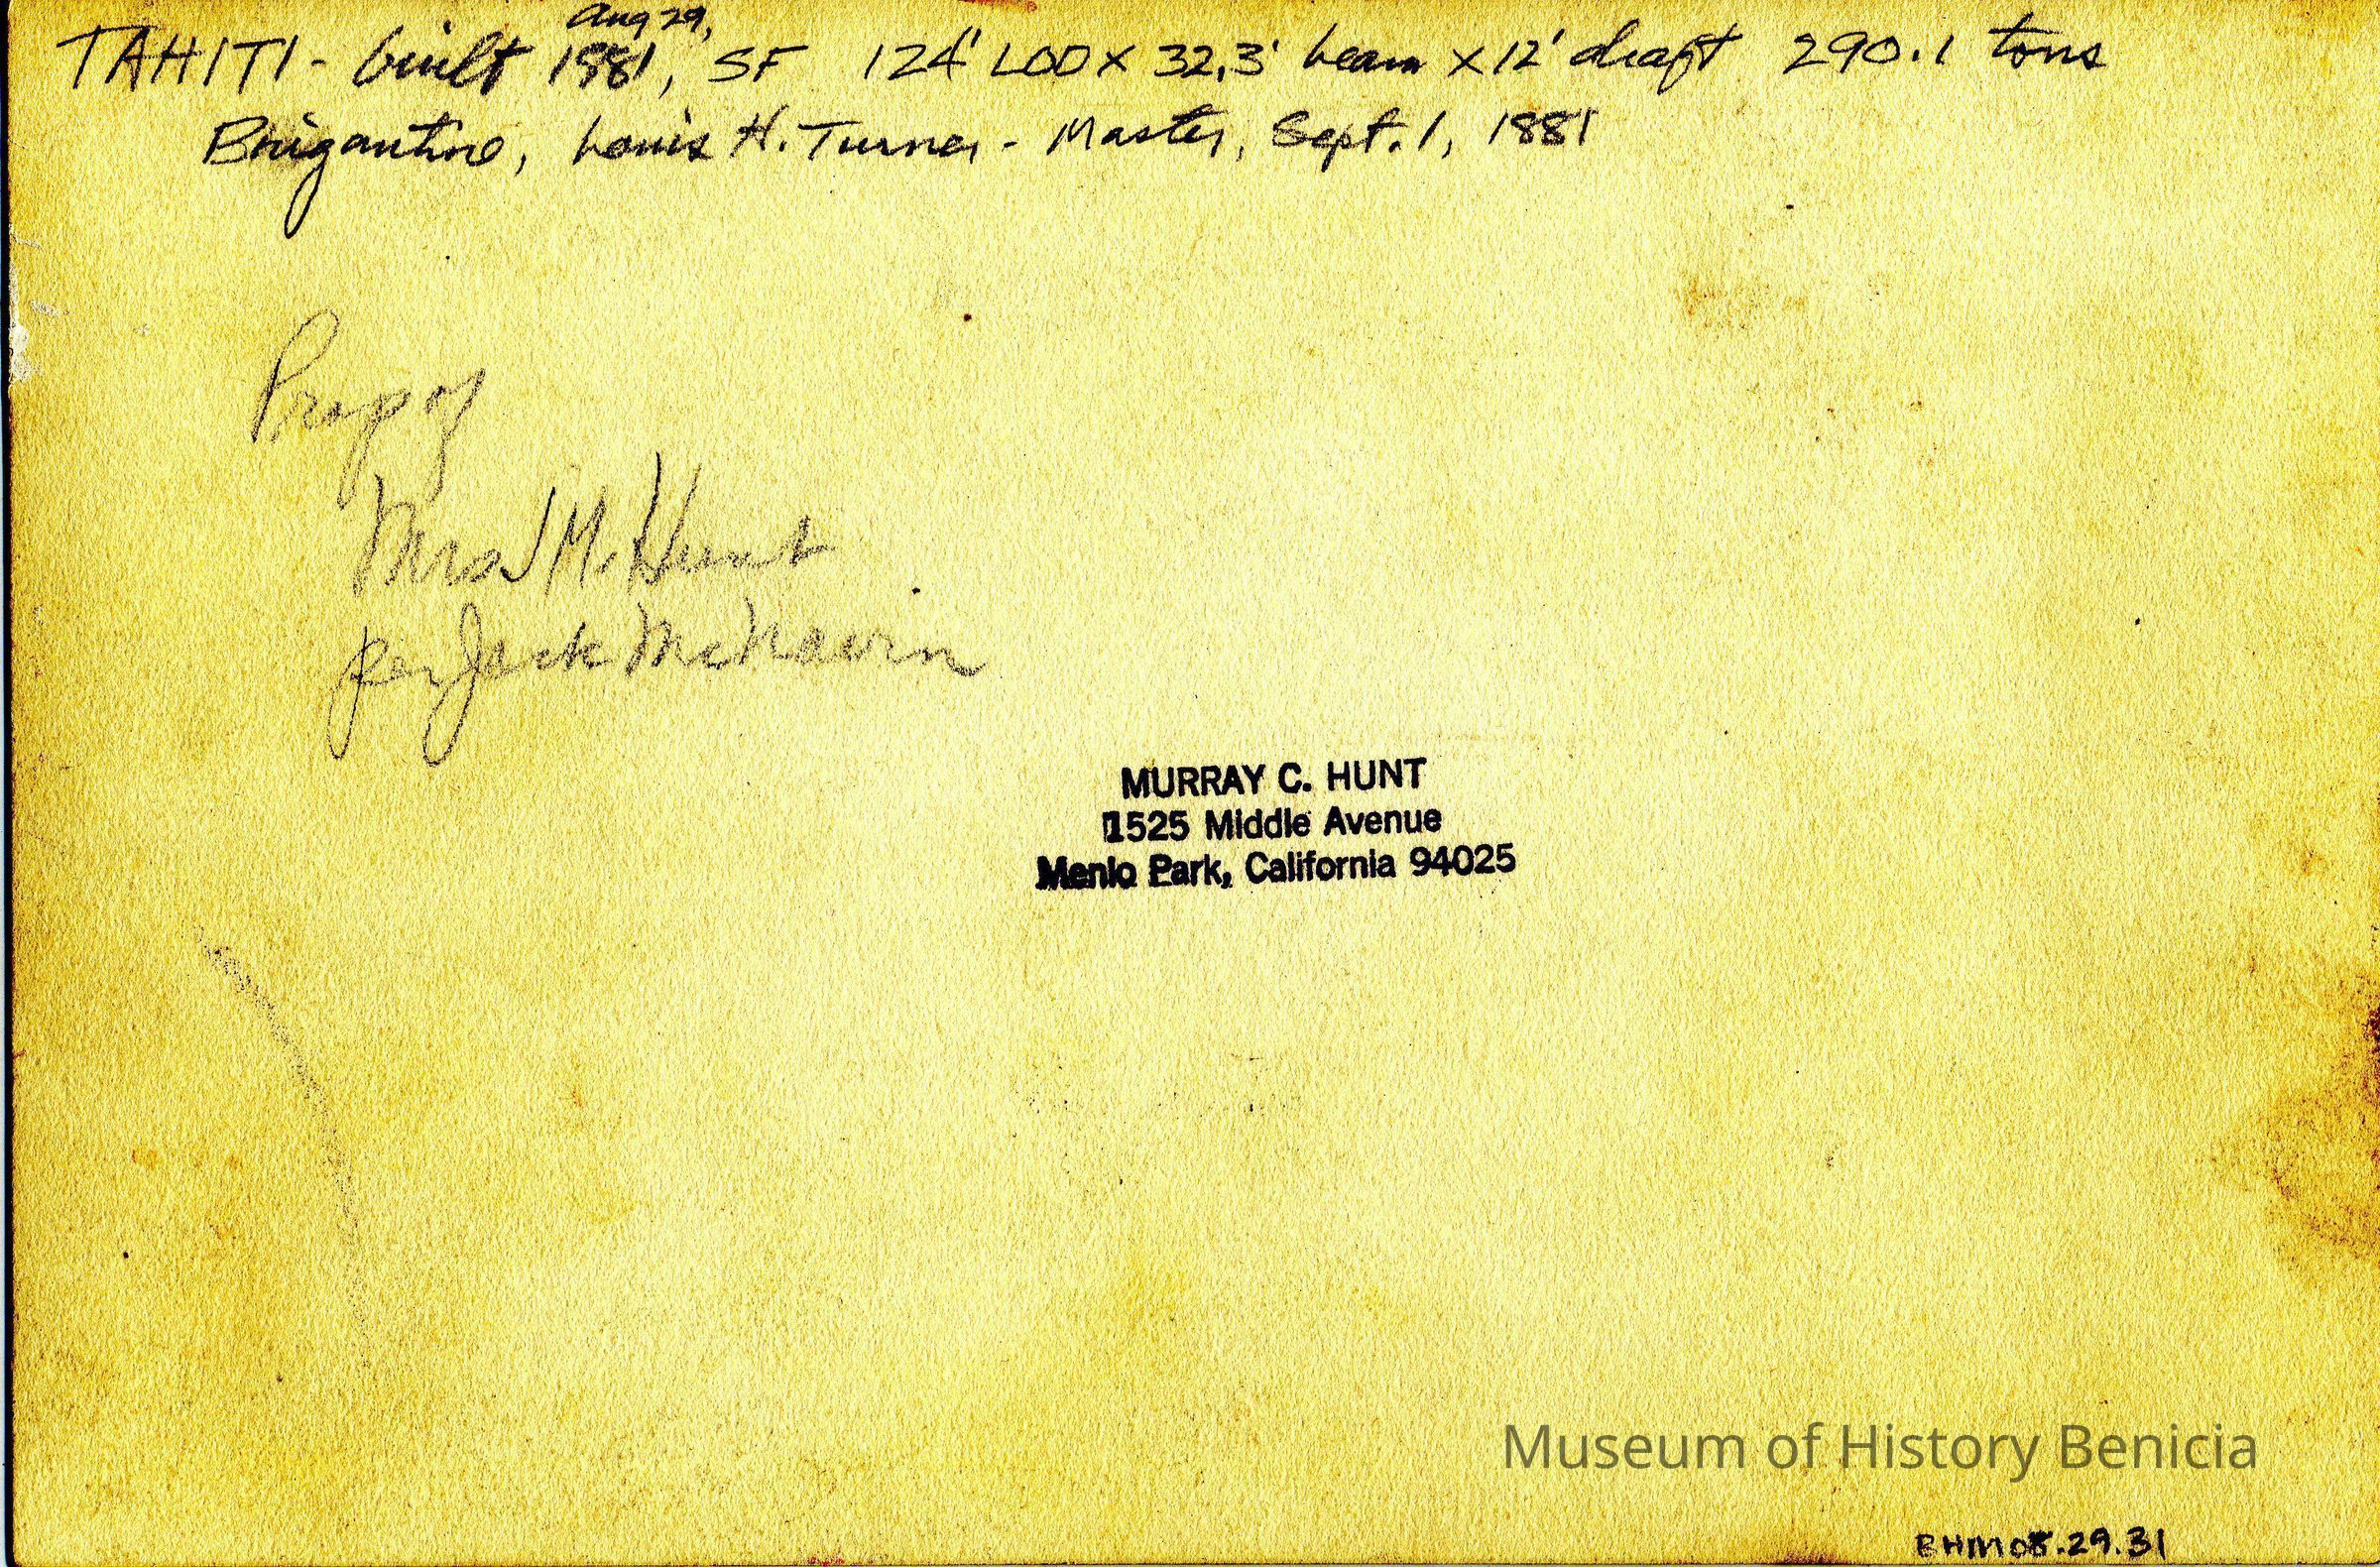 Aug 29,
TAHITI - built 1881, SF 124' LOD X 32.3' beam X 12' draft 290.1 tons
Brigantine, Louis H. Turner - Master, Sept. 1, 1881
Prop of
Mrs J M. Hunt
per Jack
MURRAY C. HUNT
1525 Middle Avenue
Menlo Park, California 94025
Museum of History Benicia
BHM08.29.31